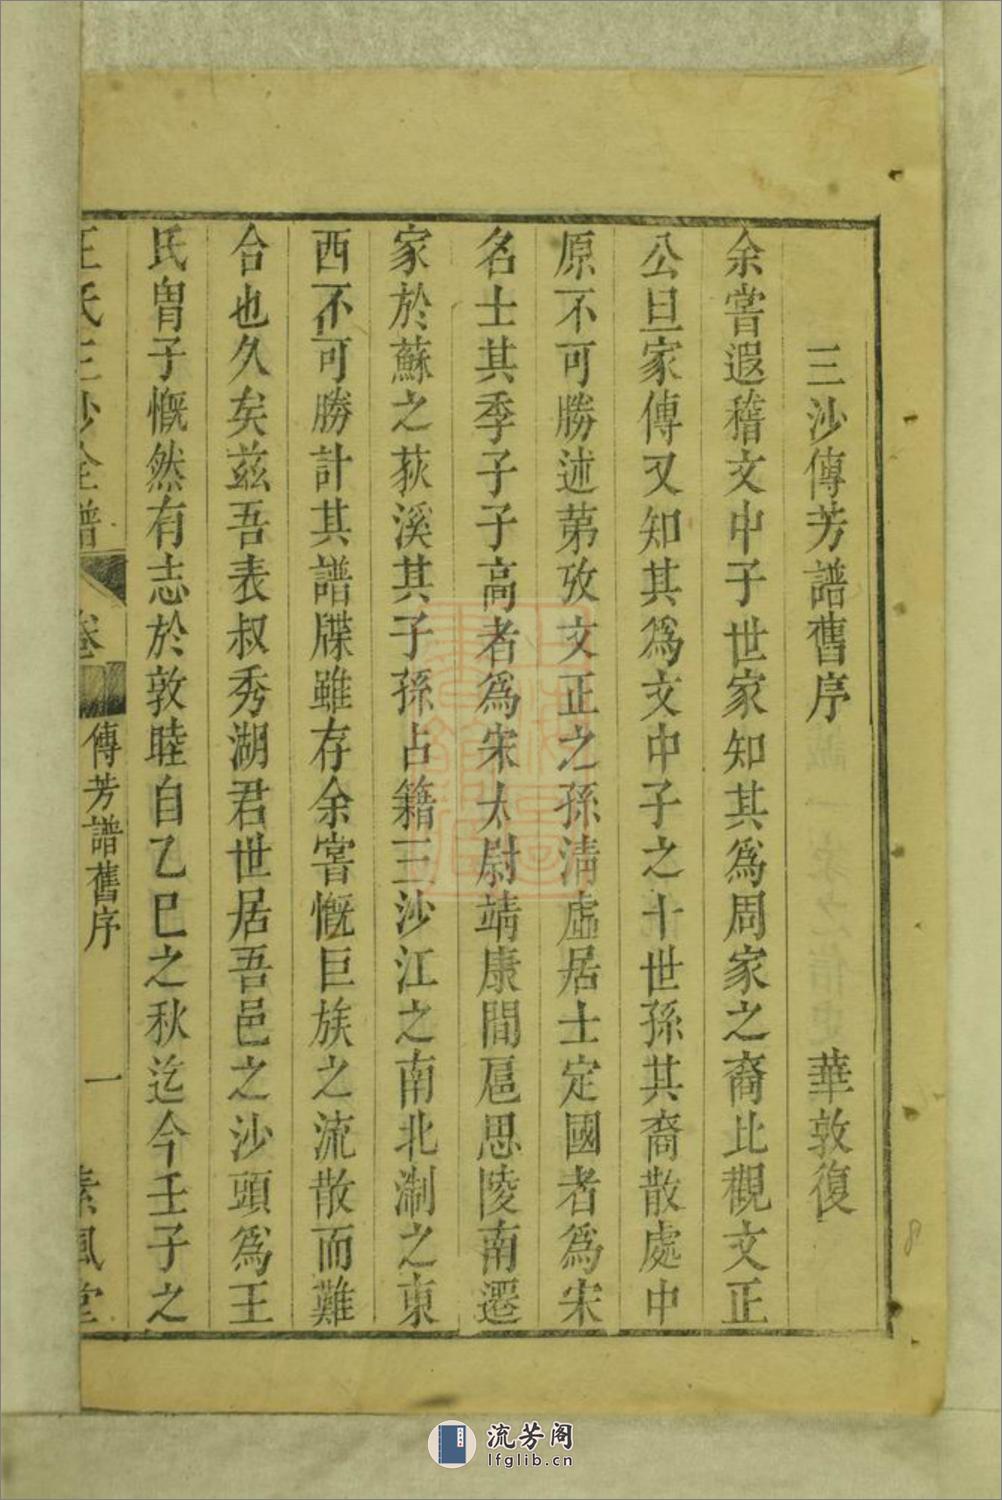 三沙傳芳譜舊序 華敦復
余嘗遐稽文中子世家知其爲周家之裔比觀文正
公旦家傳又知其爲文中子之十世孫其裔散處中
原不可勝述第攷文正之孫淸虛居士定國者爲宋
名士其季子子高者爲宋太尉靖康間扈思陵南遷
家於蘇之荻溪其子孫占籍三沙江之南北淛之東
西不可勝計其譜牒雖存余嘗慨巨族之流散而難
合也久矣兹吾表叔秀湖君世居吾邑之沙頭爲王
氏胄子慨然有志於敦睦自乙巳之秋迄今壬子之
王氏三沙全譜 卷 傳芳譜舊序 一 素風堂
流芳阁
lfglib.cn